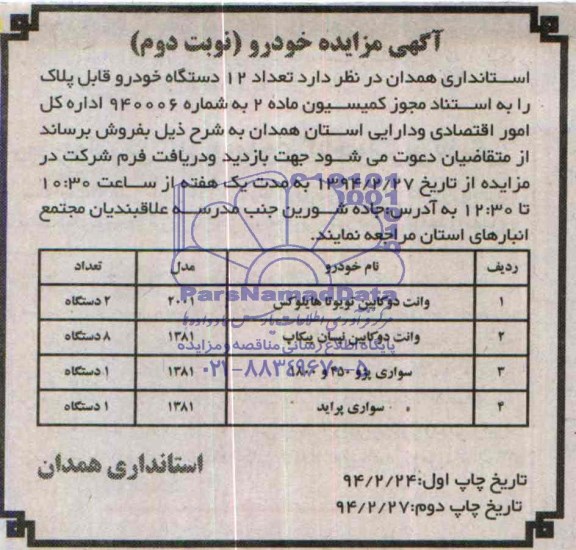 آگهی مزایده خودرو (نوبت دوم)
استانداری همدان در نظر دارد تعداد ۱۲ دستگاه خودرو قابل پلاک
را به استناد مجوز کمیسیون ماده ۲ به شماره ۹۴۰۰۰۶ اداره کل
امور اقتصادی ودارایی استان همدان به شرح ذیل بفروش برساند
از متقاضیان دعوت می شود جهت بازدید ودریافت فرم شرکت در
مزایده از تاریخ ۱۳۹۴/۲/۲۷ به مدت یک هفته از ساعت ۱۰:۳۰
تا ۱۲:۳۰ به آدرس:جاده شورین جنب مدرسه علاقبندیان مجتمع
انبارهای استان مراجعه نمایند.
ردیف نام خودرو مدل تعداد
۱ وانت دوکابین تویوتا هایلوکس ۲۰۰۱ ۲ دستگاه
۲ وانت دوکابین نیسان پیکاپ ۱۳۸۱ ۸ دستگاه
۳ سواری پژو ۱۳۸۱ ۱ دستگاه
۴ سواری پراید ۱۳۸۱ ۱ دستگاه
ParsNamadData
پایگاه اطلاع رسانی مناقصه و مزایده
۰۲۱-۸۸۳۴۹۶۷۰-۵
استانداری همدان
تاریخ چاپ اول:۹۴/۲/۲۴
تاریخ چاپ دوم:۹۴/۲/۲۷